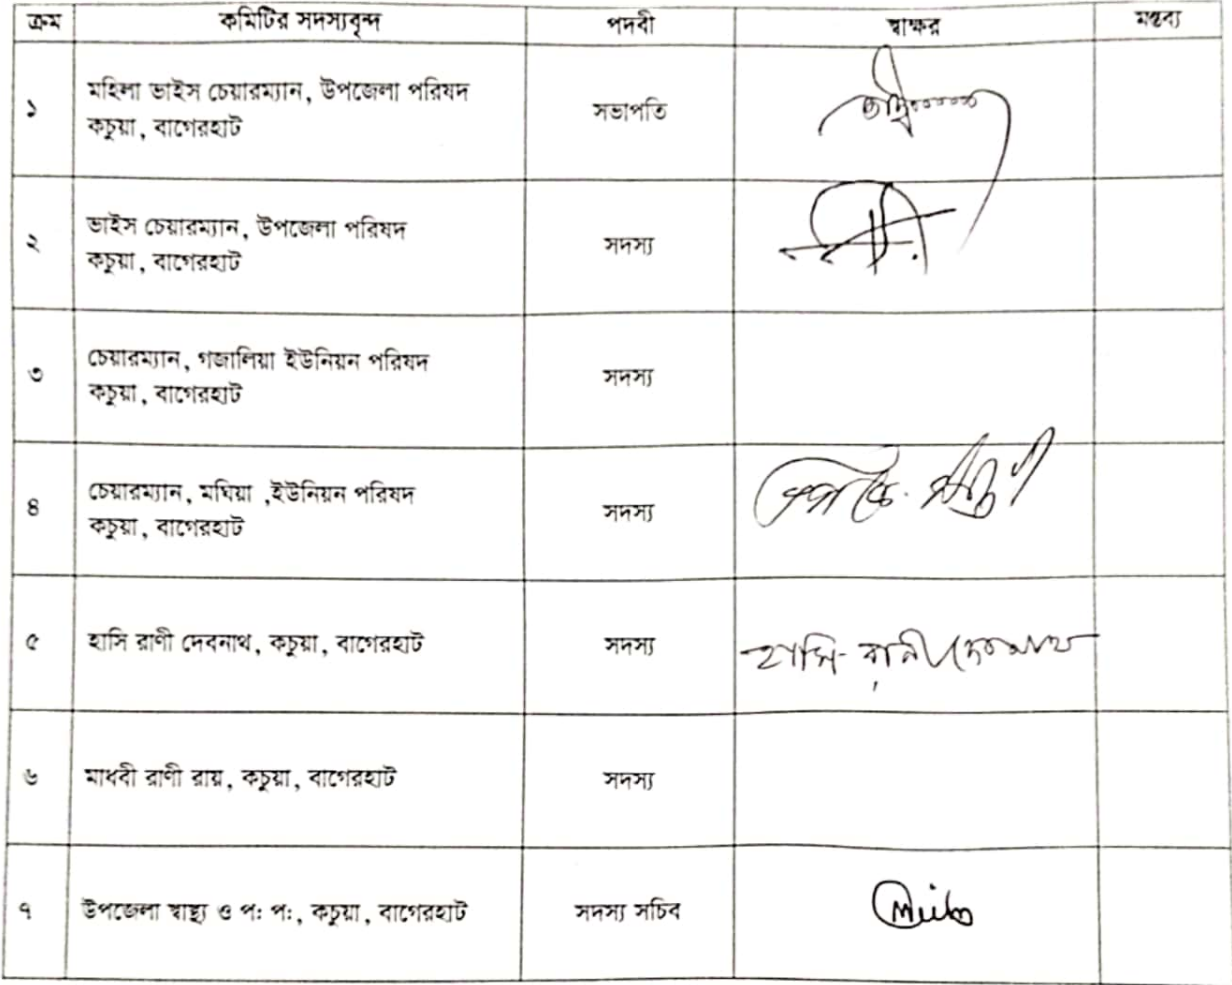 ক্রম কমিটির সদস্যবৃন্দ পদবী স্বাক্ষর মন্তব্য
১ মহিলা ভাইস চেয়ারম্যান, উপজেলা পরিষদ
কচুয়া, বাগেরহাট সভাপতি
২ ভাইস চেয়ারম্যান, উপজেলা পরিষদ
কচুয়া, বাগেরহাট সদস্য
৩ চেয়ারম্যান, গজালিয়া ইউনিয়ন পরিষদ
কচুয়া, বাগেরহাট সদস্য
৪ চেয়ারম্যান, মঘিয়া ,ইউনিয়ন পরিষদ
কচুয়া, বাগেরহাট সদস্য
৫ হাসি রাণী দেবনাথ, কচুয়া, বাগেরহাট সদস্য হাসি রানী দেবনাথ
৬ মাধবী রাণী রায়, কচুয়া, বাগেরহাট সদস্য
৭ উপজেলা স্বাস্থ্য ও প: প:, কচুয়া, বাগেরহাট সদস্য সচিব